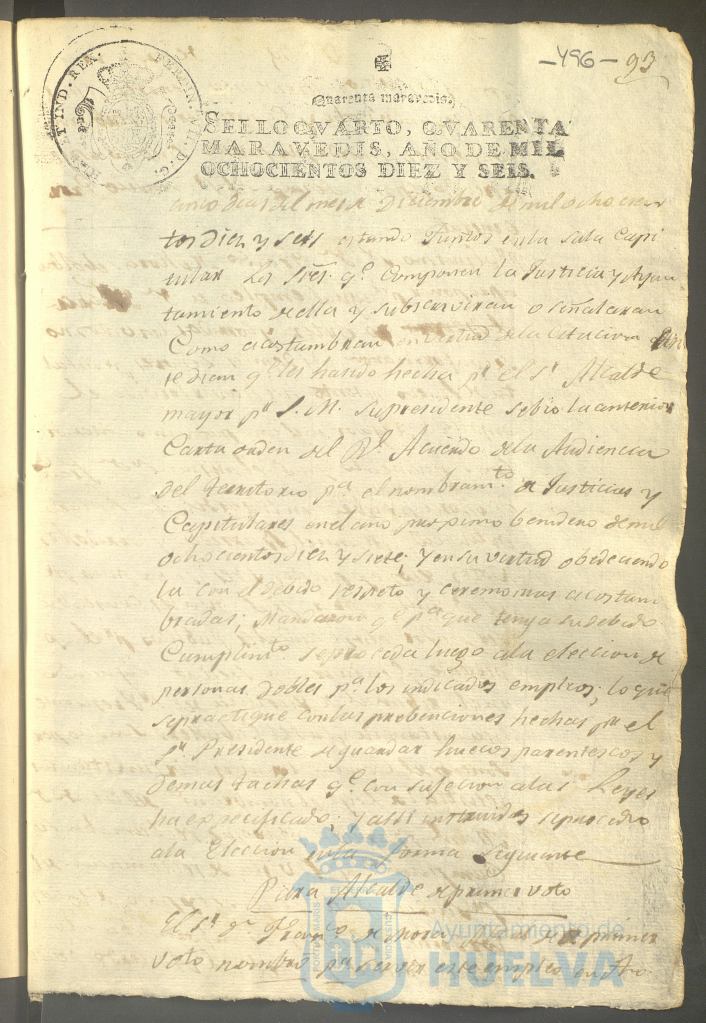 -496- 93
HISP. ET IND. REX. FERDIN. VII. D. G.
Quarenta maravedis.
SELLO QVARTO, QVARENTA
MARAVEDIS, AÑO DE MIL
OCHOCIENTOS DIEZ Y SEIS.
dias del mes de Diciembre de mil ocho cien
tos diez y seis estando Juntos en la sala Capi
tular Los Sres. qe. Componen la Justicia y Ayun
tamiento de ella y subscriviran o señalaran
Como acostumbran en virtud de la Citacion
te diem qe. les ha sido hecha pr. el Sr. Alcalde
mayor pr. S. M. su presidente se bio la anterior
Carta orden del Rl. Acuerdo de la Audiencia
del territorio pa. el nombramto. de Justicias y
Capitulares en el año proximo benidero de mil
ochocientos diez y siete; y en su virtud obedeciendo
la con el debido respeto y ceremonias acostum
bradas; Mandaron qe. pa. que tenga su debido
Cumplimto. se proceda luego a la eleccion de
personas dobles pa. los indicados empleos; lo que
se practique con las prebenciones hechas pr. el
Sr. Presidente de guardar huecos parentescos y
demas tachas qe. con sujecion a las Leyes
ha expecificado; y assi instruidos se procedio
a la Eleccion en la forma Siguiente
Para Alcalde de primer voto
El Sr. Dn. Franco. de Mora de primer
voto nombro pa. servir este empleo
Ayuntamiento de
HUELVA